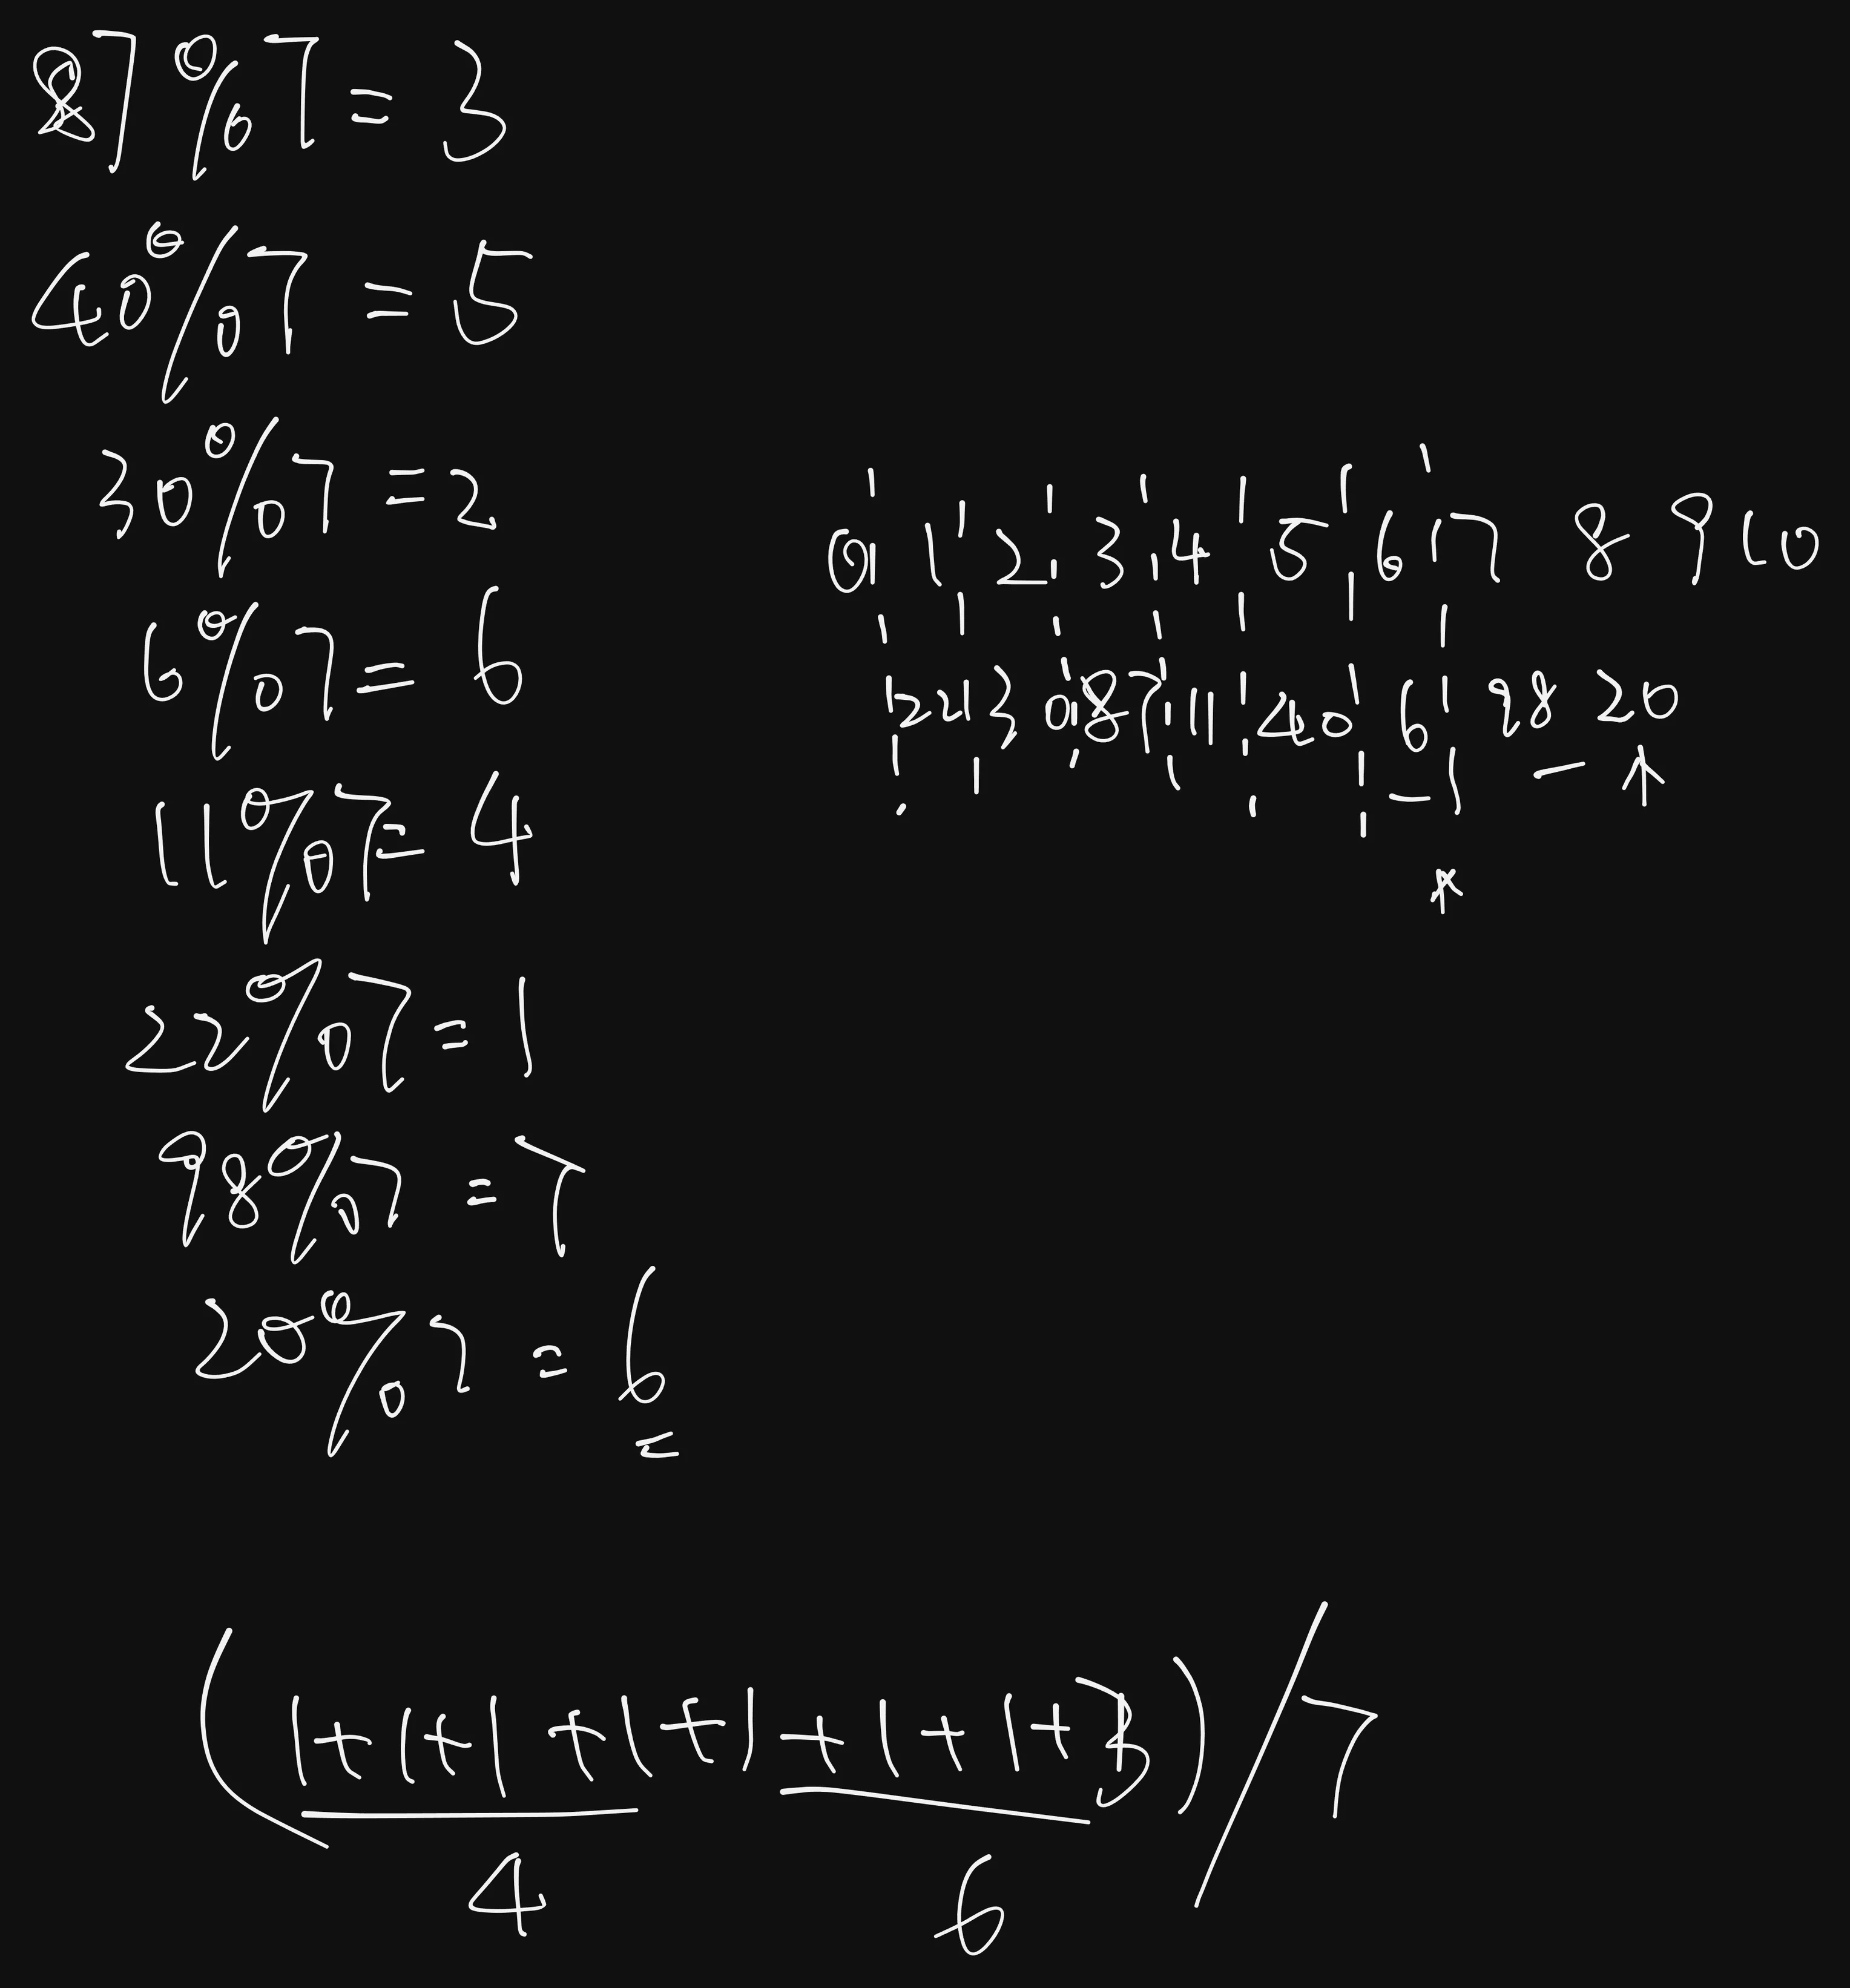 87 % 7 = 3
40 % 7 = 5
30 % 7 = 2
6 % 7 = 6
11 % 7 = 4
22 % 7 = 1
98 % 7 = 7
20 % 7 = 6
0 1 2 3 4 5 6 7 8 9 10
22 30 87 11 40 6 98 20
(1+1+1+1+1+1+1+3)/7
4 6